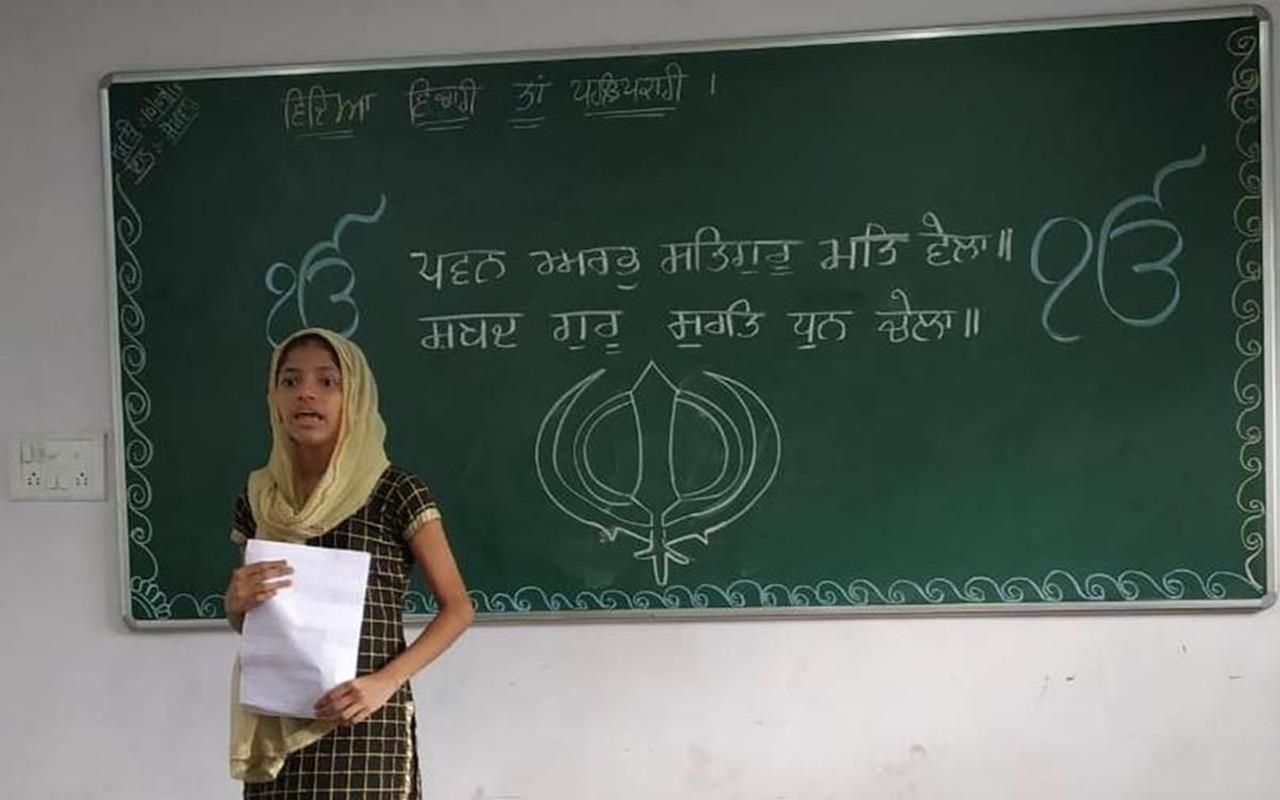 ਵਿਦਿਆ ਵਿਚਾਰੀ ਤਾਂ ਪਰਉਪਕਾਰੀ ।
ੴ ਪਵਨ ਅਰਭੁ ਸਤਿਗੁਰੁ ਮਤਿ ਵੇਲਾ॥ ੴ
ਸ਼ਬਦ ਗੁਰੁ ਸੁਰਤਿ ਧੁਨ ਚੇਲਾ॥